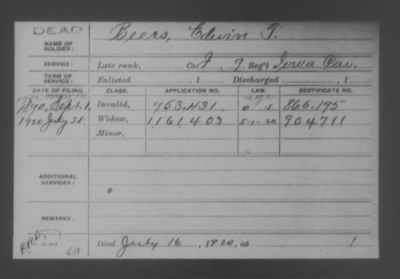 DEAD
NAME OF SOLDIER: Beers, Edwin T.
SERVICE: Late rank, Co. I, 9 Reg't Iowa Cav.
TERM OF SERVICE: Enlisted , 1 Discharged , 1
DATE OF FILING. CLASS. APPLICATION NO. LAW. CERTIFICATE NO.
1890, Sept. 1. Invalid, 753.431 866,195
1920 July 28 Widow, 1,161,403 5-1-20 904711
Minor,
ADDITIONAL SERVICES:
REMARKS:
Died July 16, 1920, at